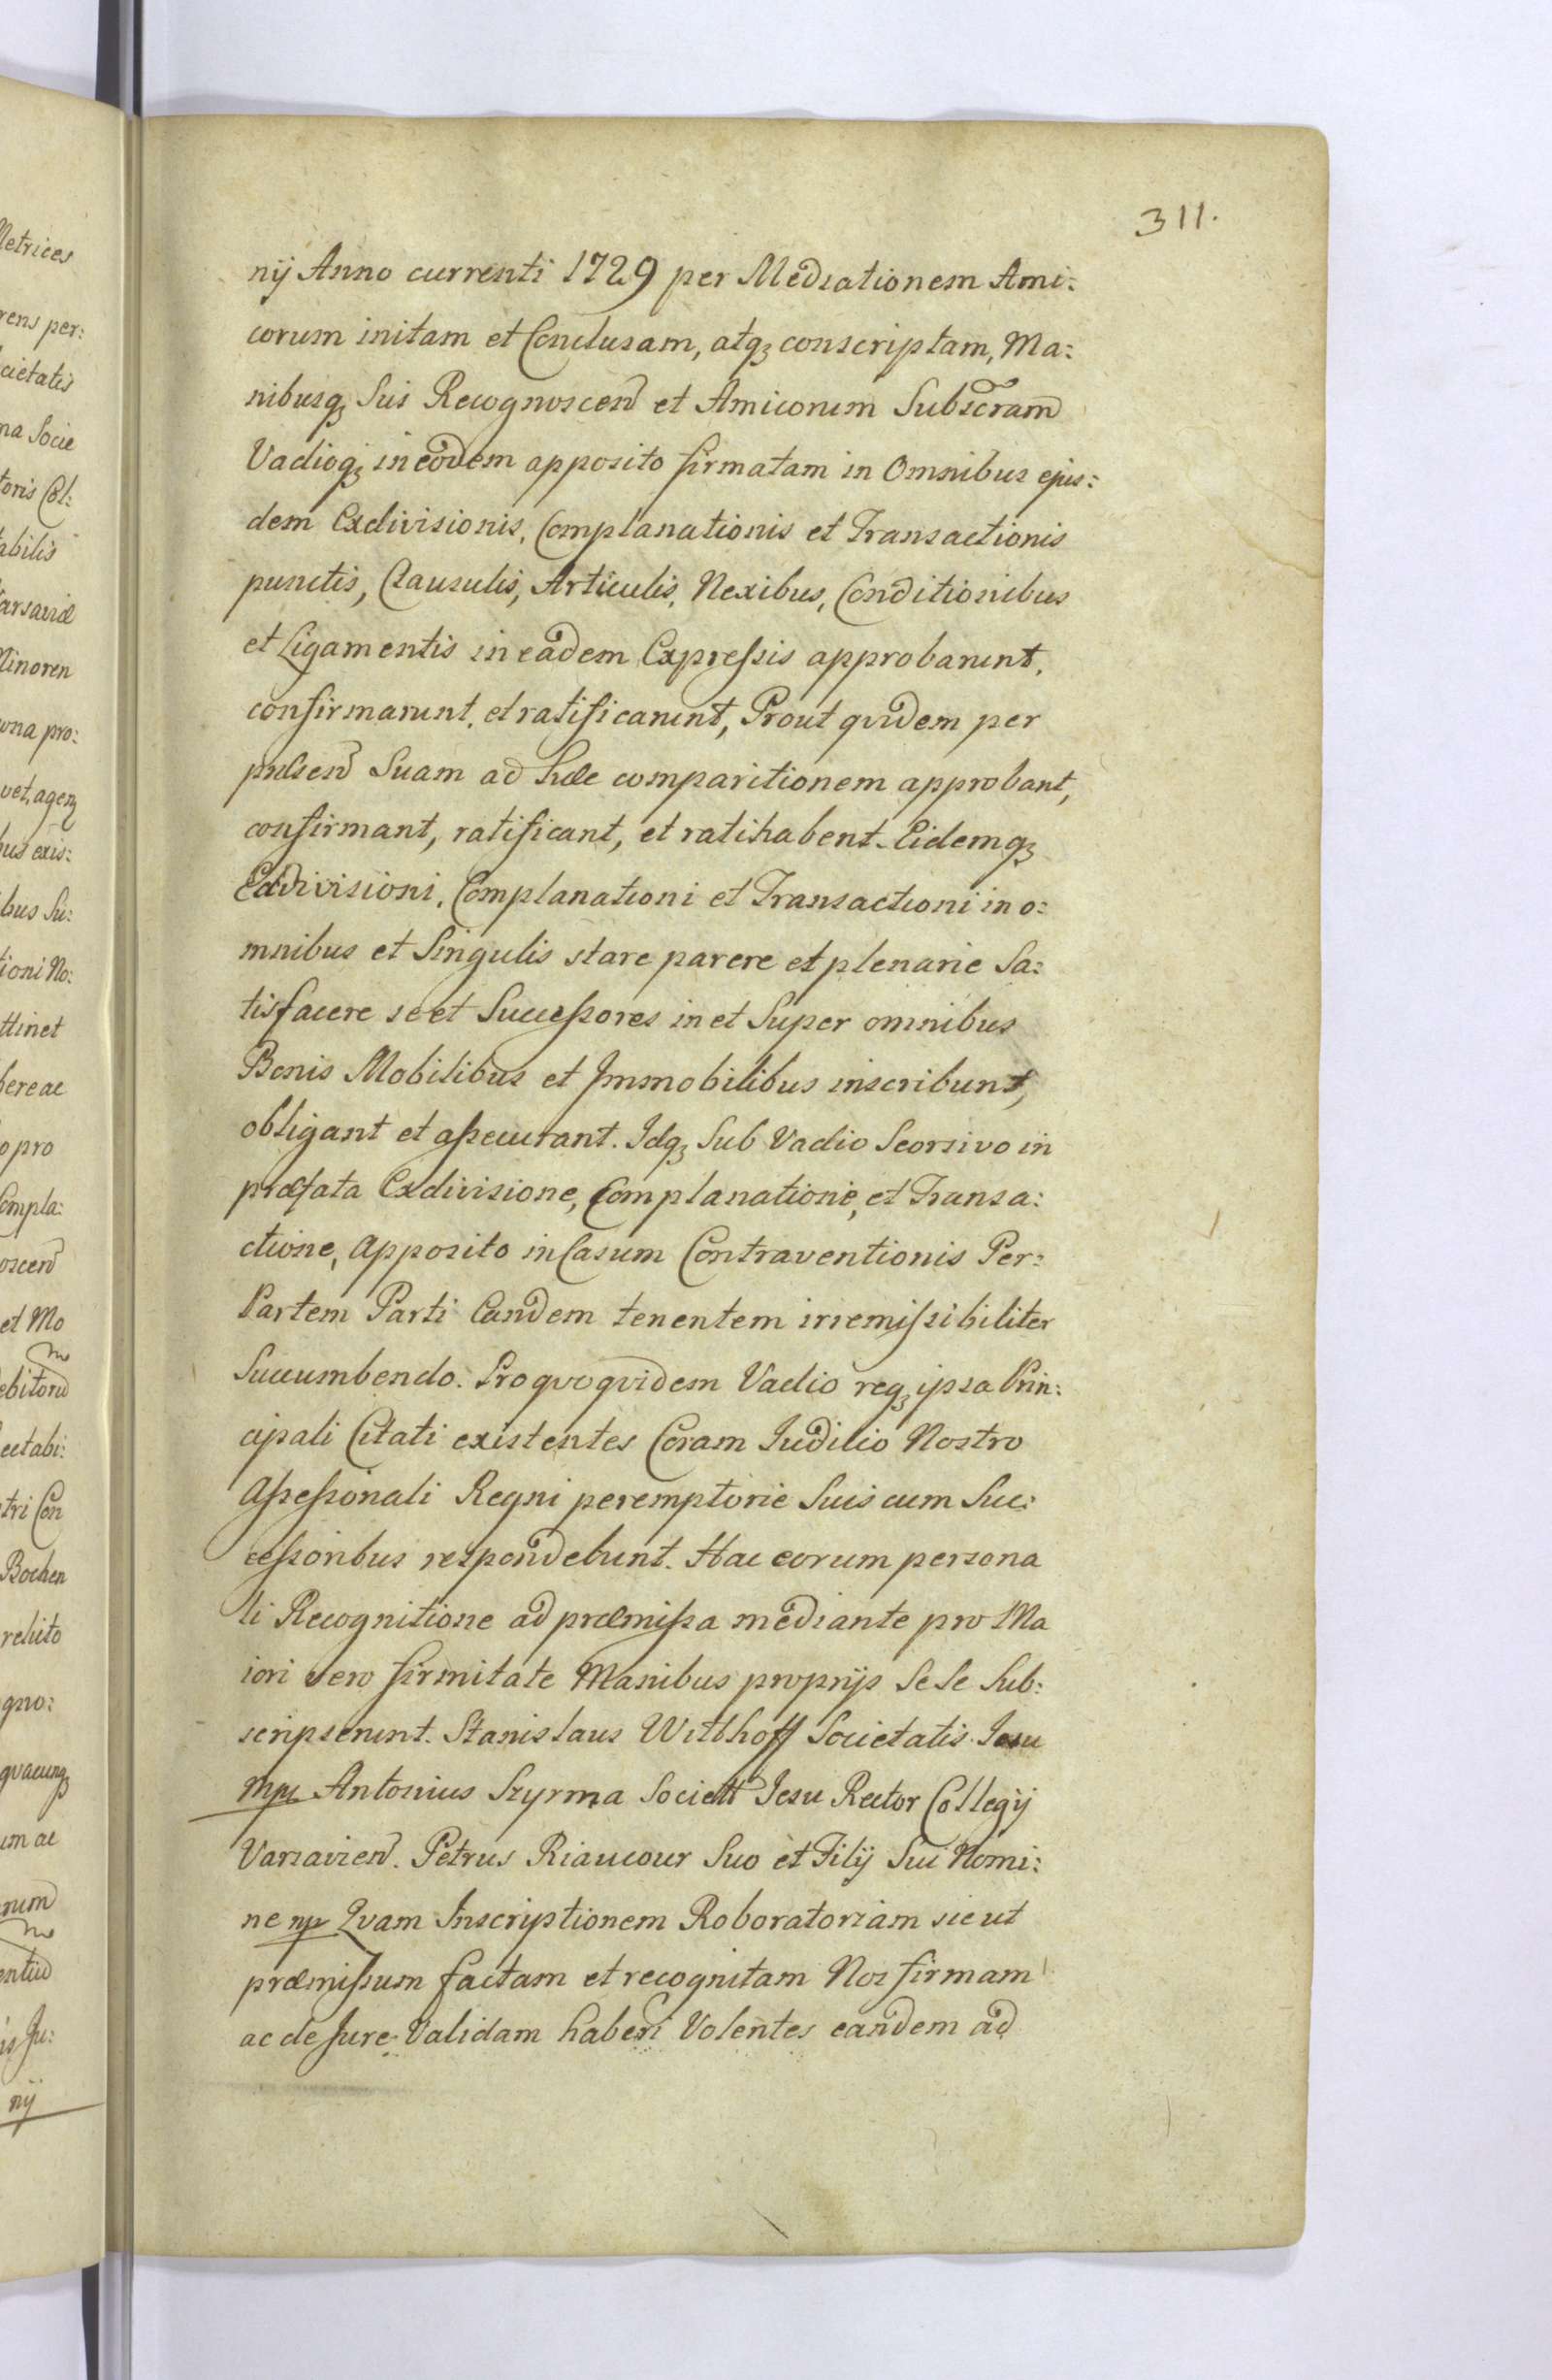 311.
nij Anno currenti 1729 per Mediationem Ami:
corum initam et Conclusam, atqз conscriptam, Ma:
nibusqз Suis Recognoscend et Amicorum Subscram
Vadioqз in eodem apposito firmatam in Omnibus ejus:
dem Exdivisionis, Complanationis et Transactionis
punctis, Clausulis, Articulis, Nexibus, Conditionibus
et Ligamentis in eadem Expressis approbarunt,
confirmarunt, et ratificarunt, Prout qvidem per
præsend Suam ad hæc comparitionem approbant,
confirmant, ratificant, et ratihabent. Eidemqз
Exdivisioni, Complanationi et Transactioni in o:
mnibus et Singulis stare parere et plenarie Sa:
tisfacere se et Successores in et Super omnibus
Bonis Mobilibus et Immobilibus inscribunt,
obligant et assecurant. Idqз Sub Vadio Seorsivo in
præfata Exdivisione, Complanatione, et Transa:
ctione, Apposito in Casum Contraventionis Per:
Partem Parti Eandem tenentem irremissibiliter
Succumbendo. Pro qvo qvidem Vadio reqз ipsa Prin:
cipali Citati existentes Coram Iudilio Nostro
Assessionali Regni peremptorie Suis cum Suc:
cessoribus respondebunt. Hac eorum persona
li Recognitione ad præmissa mediante pro Ma
iori vero firmitate Manibus proprijs Se Se Sub:
scripserunt. Stanislaus Witthoff Societatis Iesu
mp Antonius Szyrma Societt Iesu Rector Collegij
Varsaviend. Petrus Riaucour Suo et Filij Sui Nomi:
ne mp Qvam Inscriptionem Roboratoriam sicut
præmissum factam et recognitam Nos firmam
ac de Jure Validam haberi Volentes eandem ad